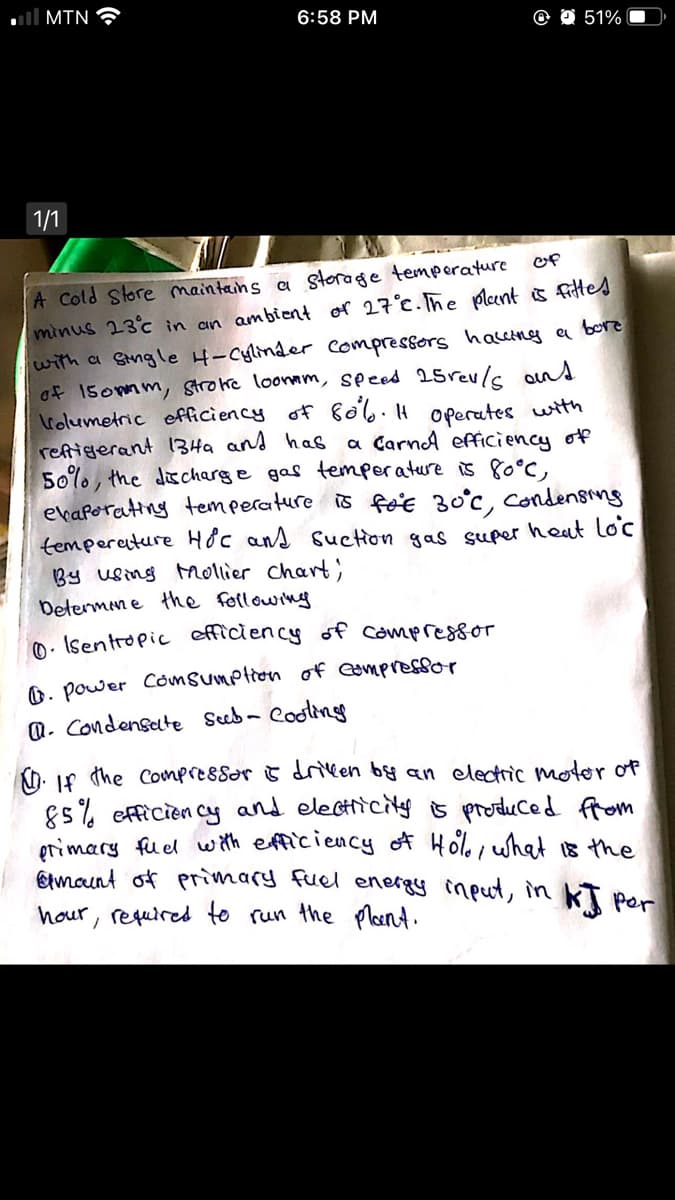 MTN 6:58 PM 51%
1/1
A Cold Store maintains a storage temperature of
minus 23°C in an ambient of 27°C. The plant is fitted
with a single 4-Cylinder compressors having a bore
of 150mm, stroke 100mm, speed 25rev/s and
Volumetric efficiency of 80%. It operates with
refrigerant 134a and has a Carnot efficiency of
50%, the discharge gas temperature is 80°C,
evaporating temperature is 30°C, Condensing
temperature 48°C and Suction gas super heat 10°C
By using Mollier chart;
Determine the following
Isentropic efficiency of compressor
power Comsumption of compressor
Condensate Sub-Cooling
If the Compressor is driven by an electric motor of
85% efficiency and electricity is produced from
primary fuel with efficiency of 40%, what is the
amount of primary fuel energy input, in kJ per
hour, required to run the plant.